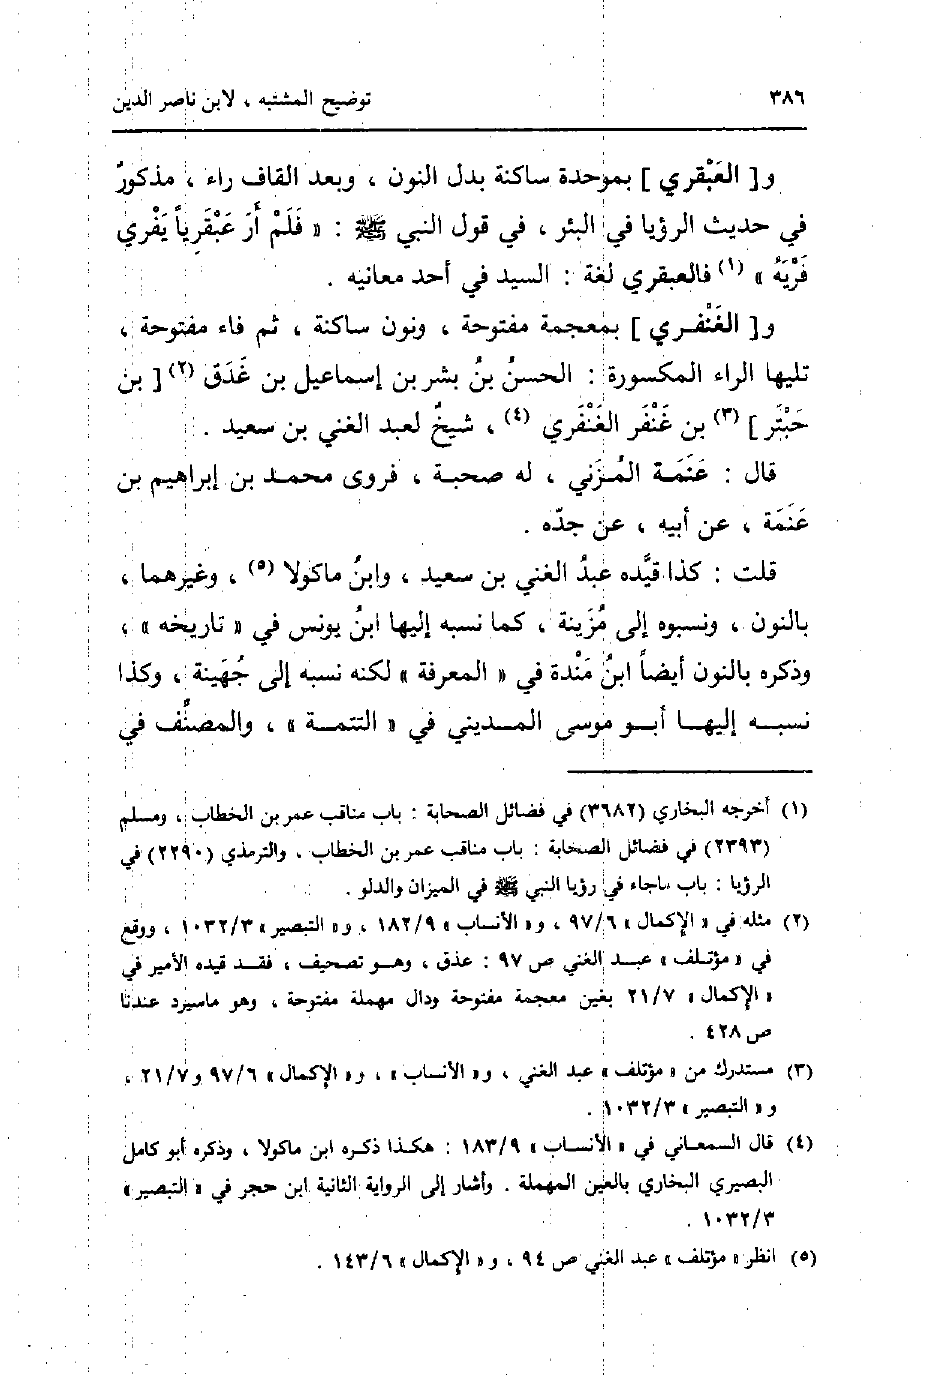 ٣٨٦ توضيح المشتبه ، لابن ناصر الدين
و[ العَبْقري ] بموحدة ساكنة بدل النون ، وبعد القاف راء ، مذكورٌ
في حديث الرؤيا في البئر ، في قول النبي ﷺ : « فَلَمْ أَرَ عَبْقَرِياً يَفْري
فَرْيَهُ » (١) فالعبقري لغة : السيد في أحد معانيه .
و[ الغَنْفري ] بمعجمة مفتوحة ، ونون ساكنة ، ثم فاء مفتوحة ،
تليها الراء المكسورة : الحسنُ بنُ بشر بن إسماعيل بن غَدَق (٢) [ بن
حَبْتَر ] (٣) بن غَنْفَر الغَنْفَري (٤) ، شيخٌ لعبد الغني بن سعيد .
قال : عَنَمَة المُزَني ، له صحبة ، فروى محمد بن إبراهيم بن
عَنَمَة ، عن أبيه ، عن جدّه .
قلت : كذا قيَّده عبدُ الغني بن سعيد ، وابنُ ماكولا (٥) ، وغيرهما ،
بالنون ، ونسبوه إلى مُزَينة ، كما نسبه إليها ابنُ يونس في « تاريخه » ،
وذكره بالنون أيضاً ابنُ مَنْدة في « المعرفة » لكنه نسبه إلى جُهَينة ، وكذا
نسبه إليها أبو موسى المديني في « التتمة » ، والمصنِّف في
(١) أخرجه البخاري (٣٦٨٢) في فضائل الصحابة : باب مناقب عمر بن الخطاب ، ومسلم
(٢٣٩٣) في فضائل الصحابة : باب مناقب عمر بن الخطاب ، والترمذي (٢٢٩٠) في
الرؤيا : باب ماجاء في رؤيا النبي ﷺ في الميزان والدلو .
(٢) مثله في « الإكمال » ٩٧/٦ ، و« الأنساب » ١٨٢/٩ ، و« التبصير » ١٠٣٢/٣ ، ووقع
في « مؤتلف » عبد الغني ص ٩٧ : عذق ، وهو تصحيف ، فقد قيده الأمير في
« الإكمال » ٢١/٧ بغين معجمة مفتوحة ودال مهملة مفتوحة ، وهو ماسيرد عندنا
ص ٤٢٨ .
(٣) مستدرك من « مؤتلف » عبد الغني ، و« الأنساب » ، و« الإكمال » ٩٧/٦ و٢١/٧ ،
و« التبصير » ١٠٣٢/٣ .
(٤) قال السمعاني في « الأنساب » ١٨٣/٩ : هكذا ذكره ابن ماكولا ، وذكره أبو كامل
البصيري البخاري بالعين المهملة . وأشار إلى الرواية الثانية ابن حجر في « التبصير »
١٠٣٢/٣ .
(٥) انظر « مؤتلف » عبد الغني ص ٩٤ ، و« الإكمال » ١٤٣/٦ .